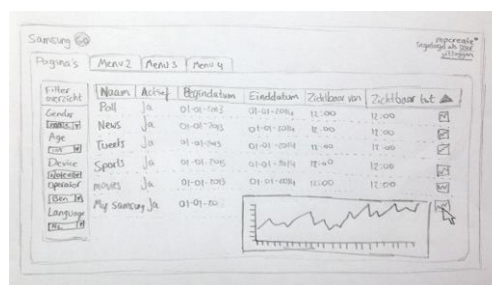 Samsung GO
popcreate
ingelogd als
uitloggen
Pagina's Menu 2 Menu 3 Menu 4
Filter overzicht
Gender
Age
Device
Operator
Ben
Language
NL
Naam Actief Begindatum Einddatum Zichtbaar van Zichtbaar tot
Poll Ja 01-01-2013 01-01-2014 12:00 12:00
News Ja 01-01-2013 01-01-2014 12:00 12:00
Tweets Ja 01-01-2013 01-01-2014 12:00 12:00
Sports Ja 01-01-2013 01-01-2014 12:00 12:00
movies Ja 01-01-2013 01-01-2014 12:00 12:00
My Samsung Ja 01-01-20